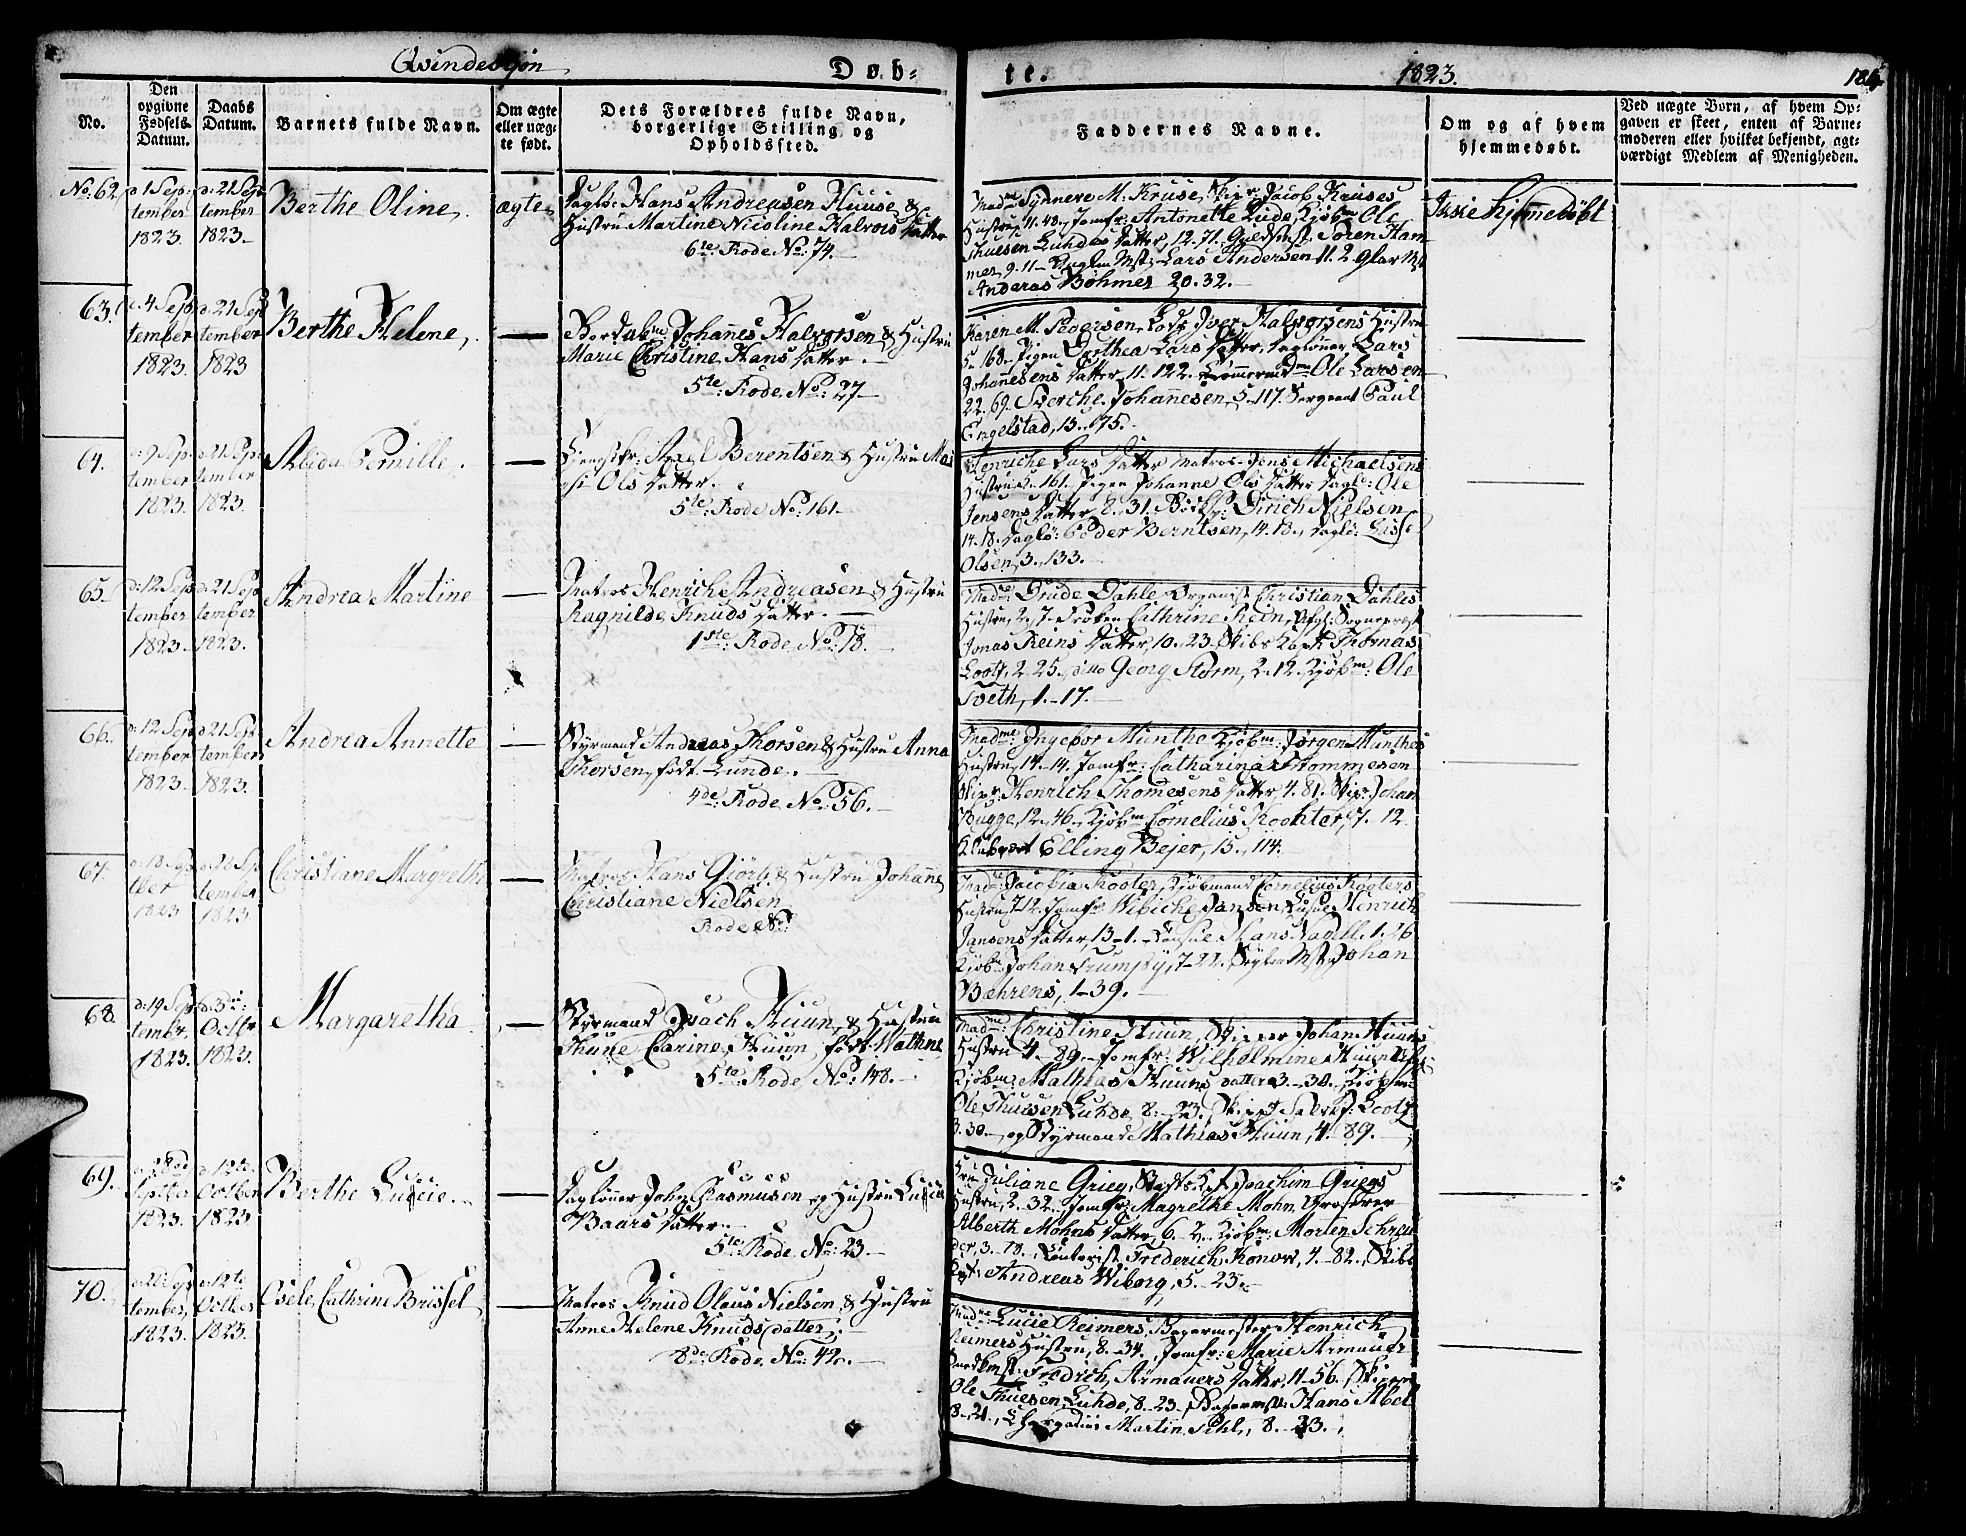 Qvindekjøn
Døb-
te.
1823.
No.
Den opgivne Fødsels-Datum.
Daabs Datum.
Barnets fulde Navn.
Om ægte eller uæg-te født.
Dets Forældres fulde Navn, borgerlige Stilling og Opholdssted.
Faddernes Navne.
Om og af hvem hjemmedøbt.
Ved uægte Børn, af hvem Op-
gaven er skeet, enten af Barne-
moderen eller hvilket bekjendt, agt-
værdigt Medlem af Menigheden.
No. 62
d: 1 Sep:
tember
1823.
d: 21 Sep
tember
1823.
Berthe Oline.
ægte
Dagl: Hans Andreasen Huuse &
Hustru Martine Nicoline Halvors Datter
6te Rode No: 74.
Madme Synneve M. Kruse, Skipr Jacob Kruses
Hustru, 11.48, Jomfr: Antonette Lude, Kjøbm Ole
Thuesen Luhdes Datter, 12.71. Guldsm: Søren Ham-
mer, 9.11 Lars Andersen 11.2 Glar Mst
Anderas Bøhmer 20.32.
Ikke hjemmedøbt
63.
d: 4 Sep
tember
1823.
d: 21 Sep
tember
1823
Berthe Helene,
Johanes Halvorsen & Hustru
Marie Christine Hans Datter.
5te Rode No: 27
Karen M. Pedersen, Lods Iver Halvorsens Hustru
5. 168. Pigen Dorthea Lars Datter, Dagløner Lars
Johannesens Datter 11. 122. Ole Larsen
22. 69. Johanesen, 5. 117. Sergeant Paul
Engelstad, 13. 175.
64.
d: 9 Sep
tember
1823.
d: 21 Sep
tember
1823.
Alida Pernille.
Berentsen & Hustru Ma
Ols Datter.
5te Rode No: 161.
Henriche Lars Datter Matros Jens Michaelsens
Hustru 3. 161. Pigen Johanne Ols Datter Dagl: Ole
Jensens Datter 8. 31. Dirich Nielsen
14.18. Dagl: Peder Berntsen, 14.18., Dagl: Lasse
Olsen, 3. 133.
65.
d: 12 Sep
tember
1823
d: 21 Sep
tember
1823.
Andrea Martine
Matros Henrich Andreasen & Hustru
Ragnilde Knuds Datter.
1ste Rode No: 18.
Madme Drude Dahle Organist Christian Dahles
Hustru, 2. 7. Frøken Cathrine Rein, Sogneprest
Jonas Reins Datter, 10. 23. Skibs Kapt: Thomas
Lootz, 2. 25. ditto Georg Storm, 2. 12. Kjøbm: Ole
Tveth, 1. 17.
66.
d: 12 Sep
tember
1823
d: 21 Sep
tember
1823.
Andrea Annette
Styrmand Andreas Thorsen & Hustru Anna
Thorsen, født Lunde.
4de Rode No: 56.
Madme Ingebor Munthe Kjøbm: Jørgen Munthes
Hustru, 14. Jomfr: Catharina Thommesen
Skipr Henrich Thomesens Datter, 4. 81. Skipr Johan
Bugge, 12. 46. Kjøbm Cornelius Kooter, 7. 12
Elling Bejer, 15. 114.
67.
d: 18 Sep
tber
1823
d: 28 Sep
tember
1823
Christiane Margrethe
Matros Hans Giørtz & Hustru Johanne
Christiane Nielsen
Rode No:
Madme Jacobia Kooter, Kjøbmand Cornelius Kooters
Hustru, 7.12. Jomfr Wibicke Jansen, Henrich
Jansens Datter, 13-1. Consul Hans 1. 26
Kjøbm Johan Krumsøy, 7-22. Johan
Behrens, 1-39.
68.
d: 19 Sep
tembr
1823.
d: 3die
Octbr
1823.
Margaretha.
Styrmand Isach Huun, & Hustru
Carine Huun, født Wathne
5te Rode No: 148.
Madme Christine Huun, Skipper Johan Huuns
Hustru 4. 89. Jomfr: Wilhelmine Huun
Kjøbm: Mathias Huuns datter 3. 30. Kjøbm
Ole Thuesen Luhde, 8. 23. Lootz
3.30. og Styrmand Mathias Huun, 4. 89.
69.
d: 28de
Septber
1823.
d: 12te
Octber
1823
Berthe Lucie.
Dagløner John Rasmusen og Hustru Lucia
Baars Datter
5te Rode No: 23
Fru Juliane Grieg, Joachim Griegs
Hustru, 2. 32. Jomfr: Magrethe Mohn, Grosserer
Alberth Mohns Datter, 6. Kjøbm: Morten Schreu-
der, 3. 78. Frederich Konow, 4. 82., Skibs
Kapt: Andreas Wiborg, 5. 23.
70.
tember,
1823.
d: 12te
Octber
1823.
Cathrine Brüssel
Matros Knud Olaus Nielsen & Hustru
Anne Helene Knuds datter.
8de Rode No: 42.
Madme Lucie Reimers, Bagermester Henrich
Reimers Hustru, 8. 34. Jomfr: Marie Armauer
Fredrich Armauers Datter, 11-56. Skipper
Ole Thuesen Luhde, 8. 23. Hans Abel
8. 21. Martin Pihl, 8. 23.